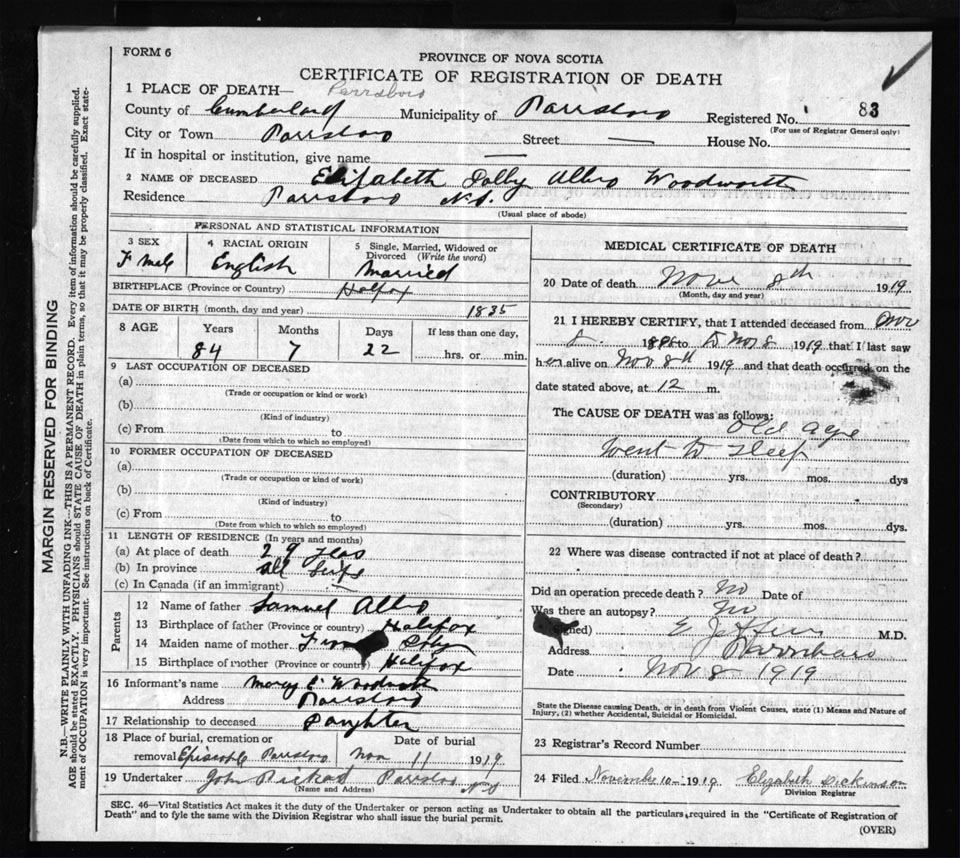 FORM 6
PROVINCE OF NOVA SCOTIA
CERTIFICATE OF REGISTRATION OF DEATH
1 PLACE OF DEATH— Parrsboro
County of Cumberland Municipality of Parrsboro Registered No. 83
(For use of Registrar General only)
City or Town Parrsboro Street — House No.
If in hospital or institution, give name —
2 NAME OF DECEASED Elizabeth Dolly Albro Woodworth
Residence Parrsboro N.S.
(Usual place of abode)
PERSONAL AND STATISTICAL INFORMATION
3 SEX 4 RACIAL ORIGIN 5 Single, Married, Widowed or Divorced (Write the word)
F Male English Married
BIRTHPLACE (Province or Country) Halfox
DATE OF BIRTH (month, day and year) 1835
8 AGE Years Months Days If less than one day,
84 7 22 hrs. or min.
9 LAST OCCUPATION OF DECEASED
(a)
(Trade or occupation or kind or work)
(b)
(Kind of industry)
(c) From to
(Date from which to which so employed)
10 FORMER OCCUPATION OF DECEASED
(a)
(Trade or occupation or kind of work)
(b)
(Kind of industry)
(c) From to
(Date from which to which so employed)
11 LENGTH OF RESIDENCE (In years and months)
(a) At place of death 29 years
(b) In province all life
(c) In Canada (if an immigrant)
Parents
12 Name of father Samuel Albro
13 Birthplace of father (Province or country) Halifox
14 Maiden name of mother
15 Birthplace of mother (Province or country) Halifox
16 Informant's name Mercy E Woodworth
Address Parrsboro
17 Relationship to deceased Daughter
18 Place of burial, cremation or Date of burial
removal Episcople Parrsboro Nov 11 1919
19 Undertaker John Parrsboro NS
(Name and Address)
MEDICAL CERTIFICATE OF DEATH
20 Date of death Nove 8th 1919
(Month, day and year)
21 I HEREBY CERTIFY, that I attended deceased from Nov
to Nov 8 1919 that I last saw
her alive on Nov 8th 1919 and that death occurred on the
date stated above, at 12 m.
The CAUSE OF DEATH was as follows:
Old age
Went to sleep
(duration) yrs. mos. dys
CONTRIBUTORY
(Secondary)
(duration) yrs. mos. dys.
22 Where was disease contracted if not at place of death?
Did an operation precede death? No Date of
Was there an autopsy? No
(Signed) M.D.
Address Parrsboro
Date Nov 8 1919
State the Disease causing Death, or in death from Violent Causes, state (1) Means and Nature of
Injury, (2) whether Accidental, Suicidal or Homicidal.
23 Registrar's Record Number
24 Filed November 10 1919 Elizabeth Dickinson
Division Registrar
SEC. 46—Vital Statistics Act makes it the duty of the Undertaker or person acting as Undertaker to obtain all the particulars required in the "Certificate of Registration of
Death" and to fyle the same with the Division Registrar who shall issue the burial permit.
(OVER)
MARGIN RESERVED FOR BINDING
N.B.—WRITE PLAINLY WITH UNFADING INK—THIS IS A PERMANENT RECORD. Every item of information should be carefully supplied.
AGE should be stated EXACTLY. PHYSICIANS should STATE CAUSE OF DEATH in plain terms, so that it may be properly classified. Exact state-
ment of OCCUPATION is very important. See instructions on back of Certificate.